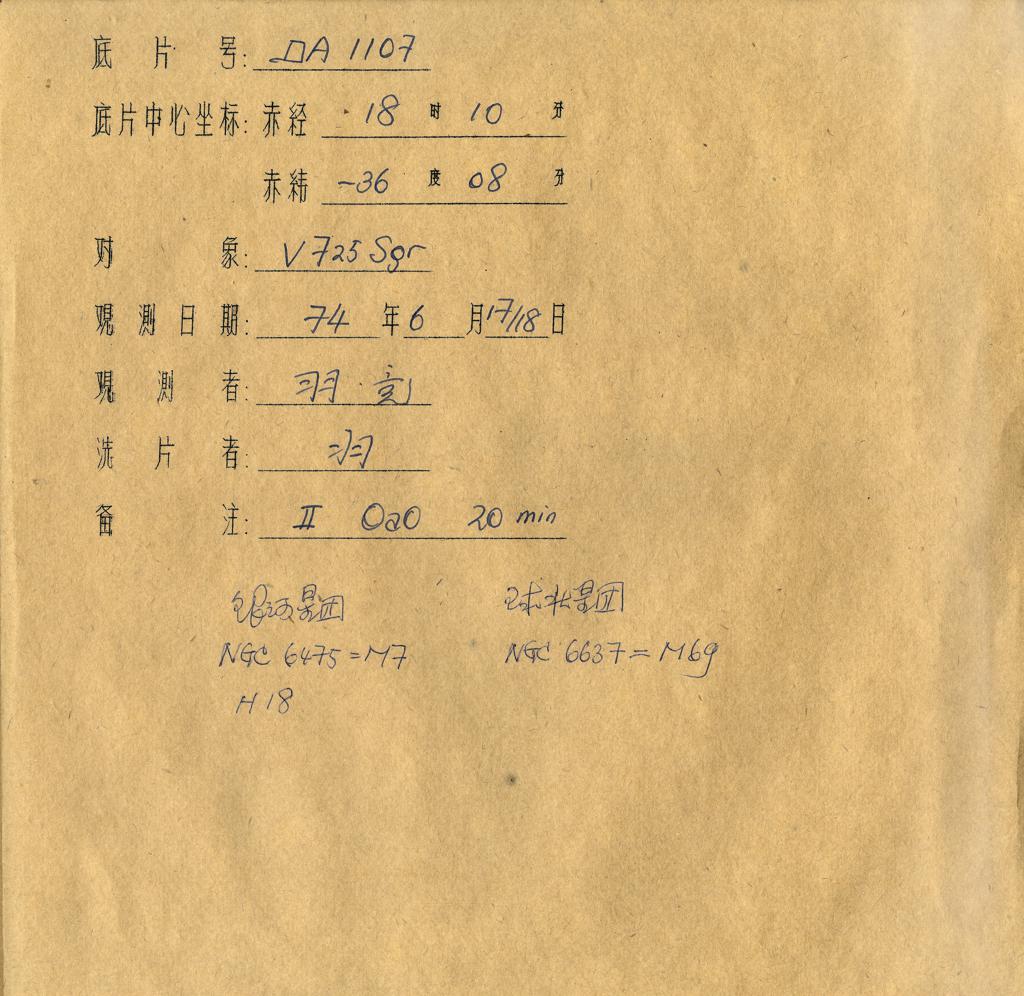 底片号: DA 1107
底片中心坐标: 赤经 18 时 10 分
赤纬 -36 度 08 分
对象: V725 Sgr
观测日期: 74 年 6 月 17/18 日
观测者: 羽·彭
洗片者: 羽
备注: II OaO 20 min
银河星团 球状星团
NGC 6475=M7 NGC 6637=M69
H 18